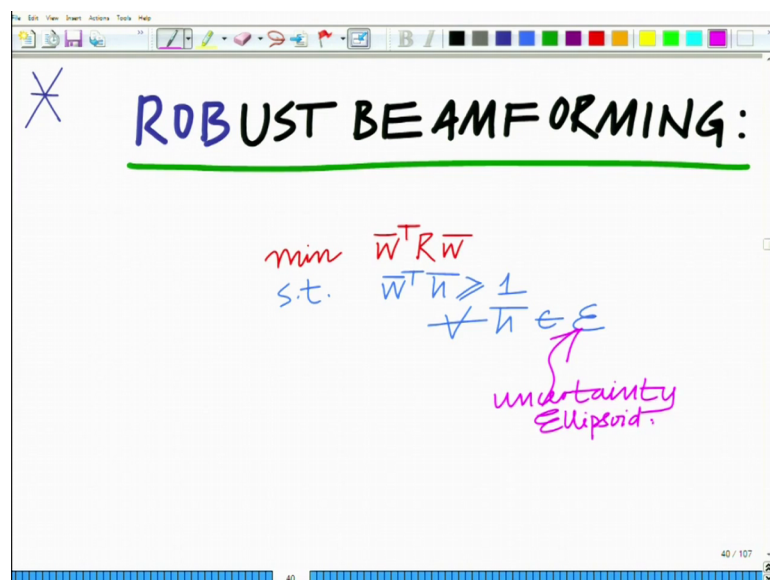 File Edit View Insert Actions Tools Help
B I
ROBUST BEAMFORMING:
min w̅ᵀR w̅
s.t. w̅ᵀ h̅ ⩾ 1
∀ h̅ ∈ ℰ
uncertainty
Ellipsoid.
40 / 107
40